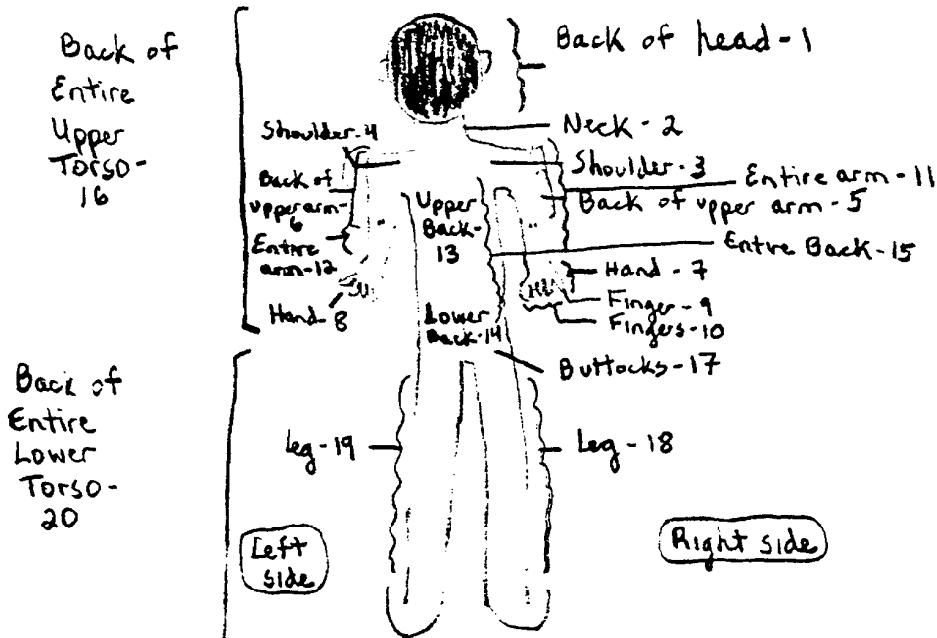 Back of
Entire
Upper
Torso-
16
Back of head-1
Neck-2
Shoulder-4
Shoulder-3
Entire arm-11
Back of
upper arm-
6
Back of upper arm-5
Upper
Back-
13
Entire
arm-12
Entire Back-15
Hand-7
Hand-8
Finger-9
Fingers-10
Lower
Back-14
Buttocks-17
Back of
Entire
Lower
Torso-
20
Leg-19
Leg-18
Left
side
Right side